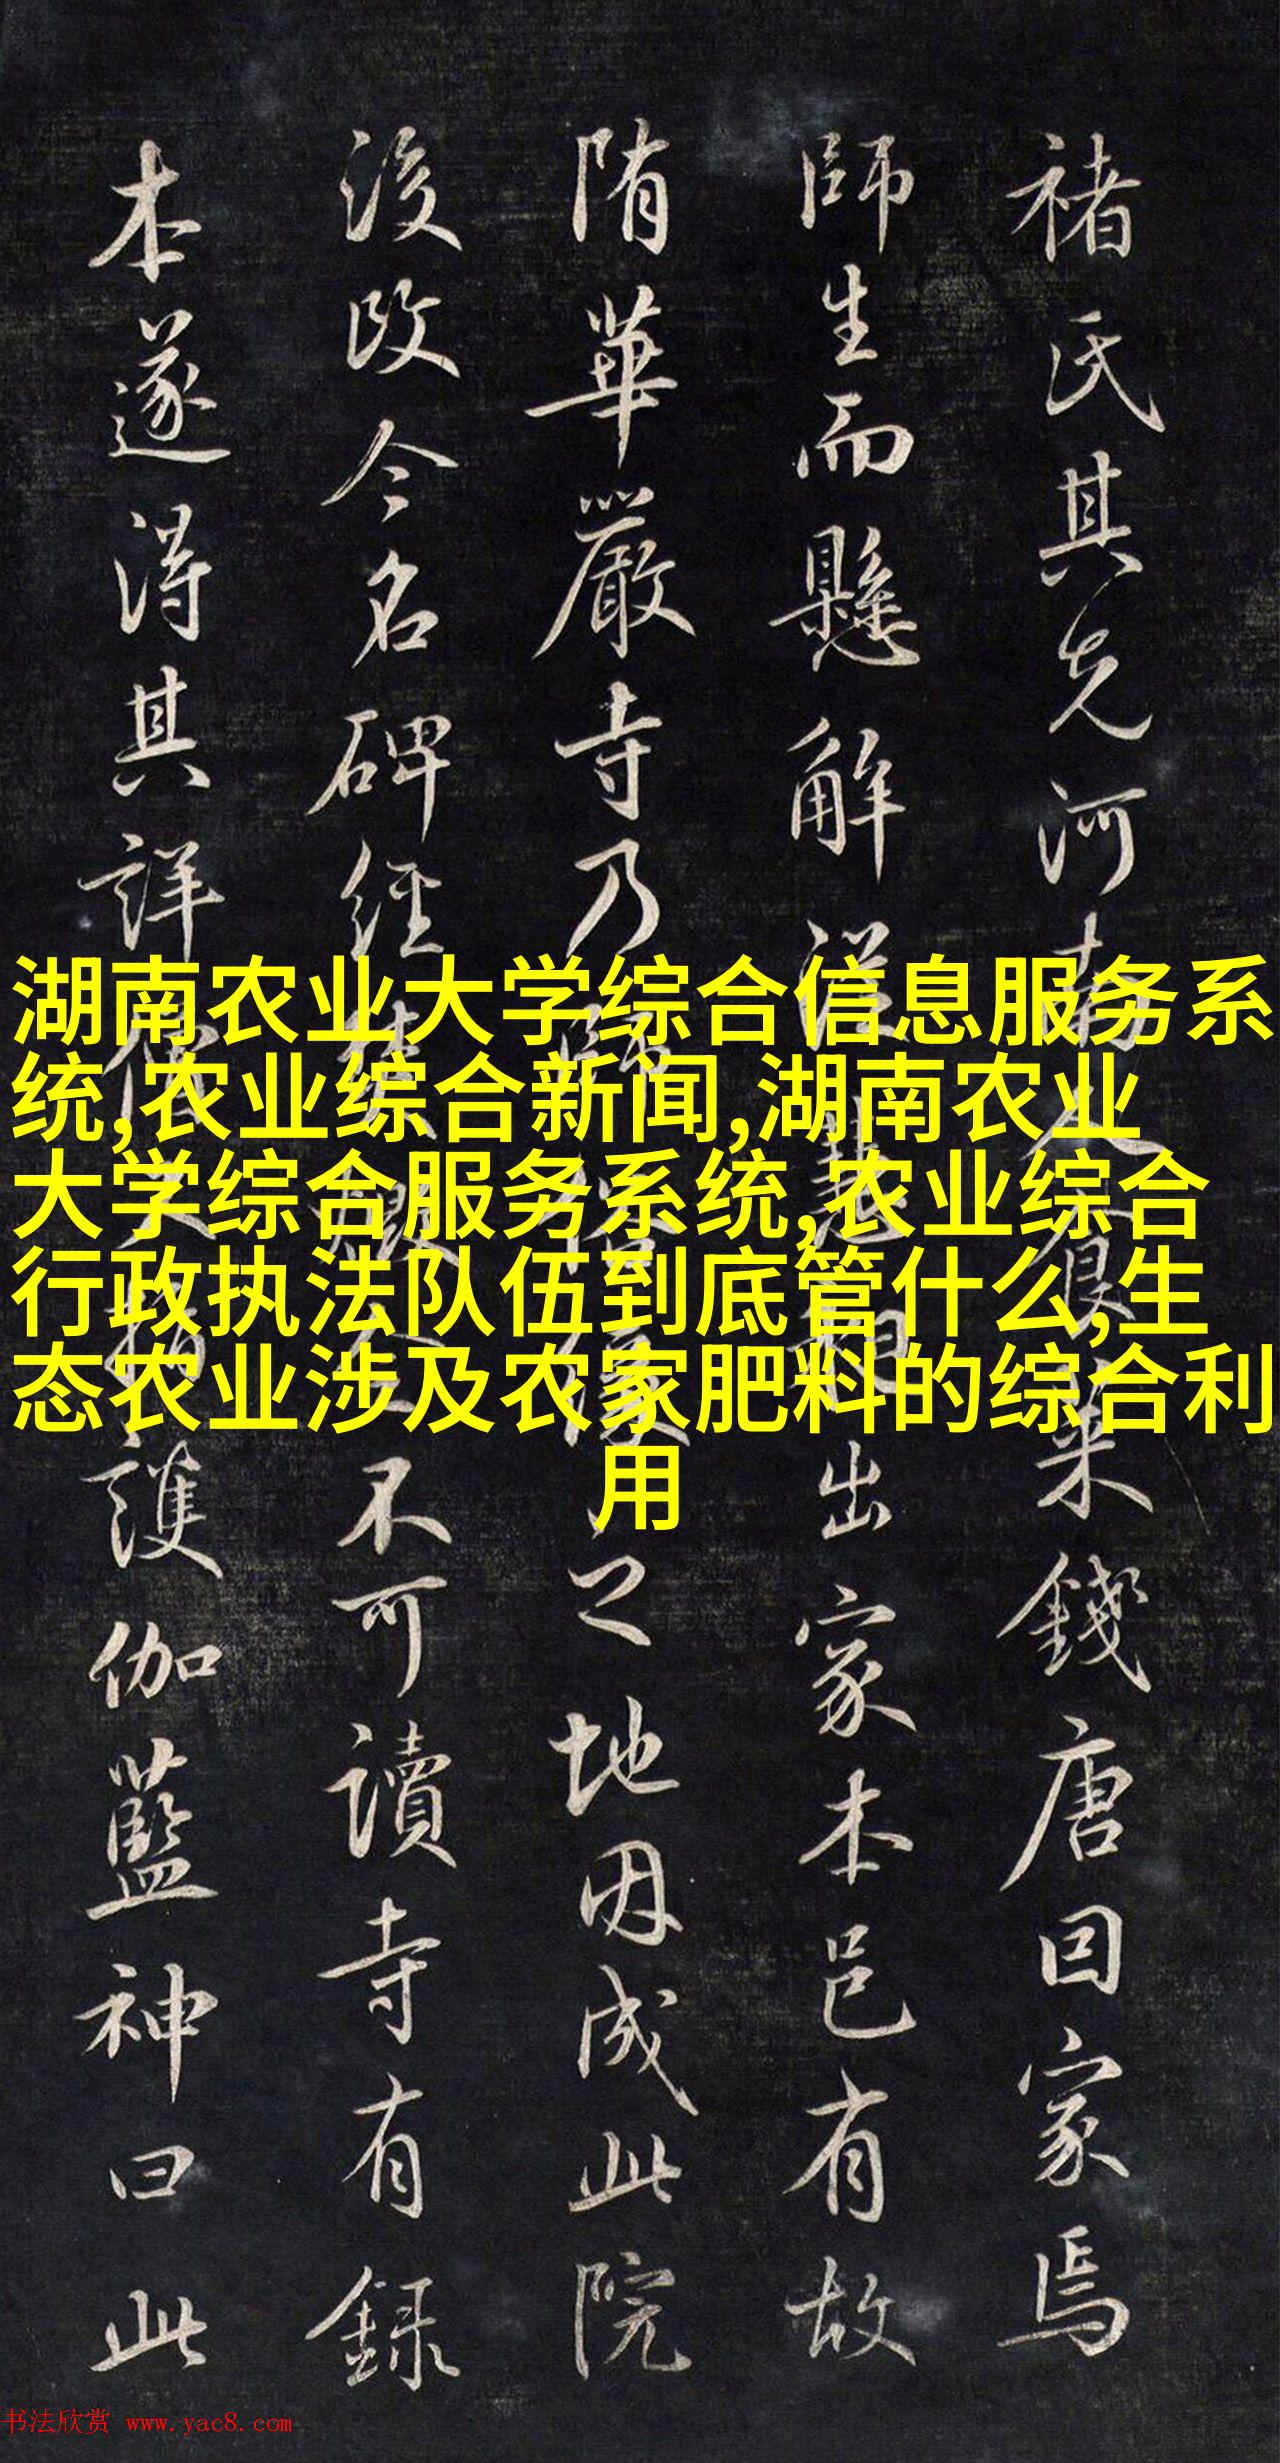 褚氏其先河南人食采錢唐因家焉
師生而懸解慧出家本邑有故
隋華嚴寺乃之地因成此院
後改今名碑經不可讀寺有録
本遂得其詳護伽藍神曰此
湖南农业大学综合信息服务系
统,农业综合新闻,湖南农业
大学综合服务系统,农业综合
行政执法队伍到底管什么,生
态农业涉及农家肥料的综合利
用
书法欣赏 www.yac8.com